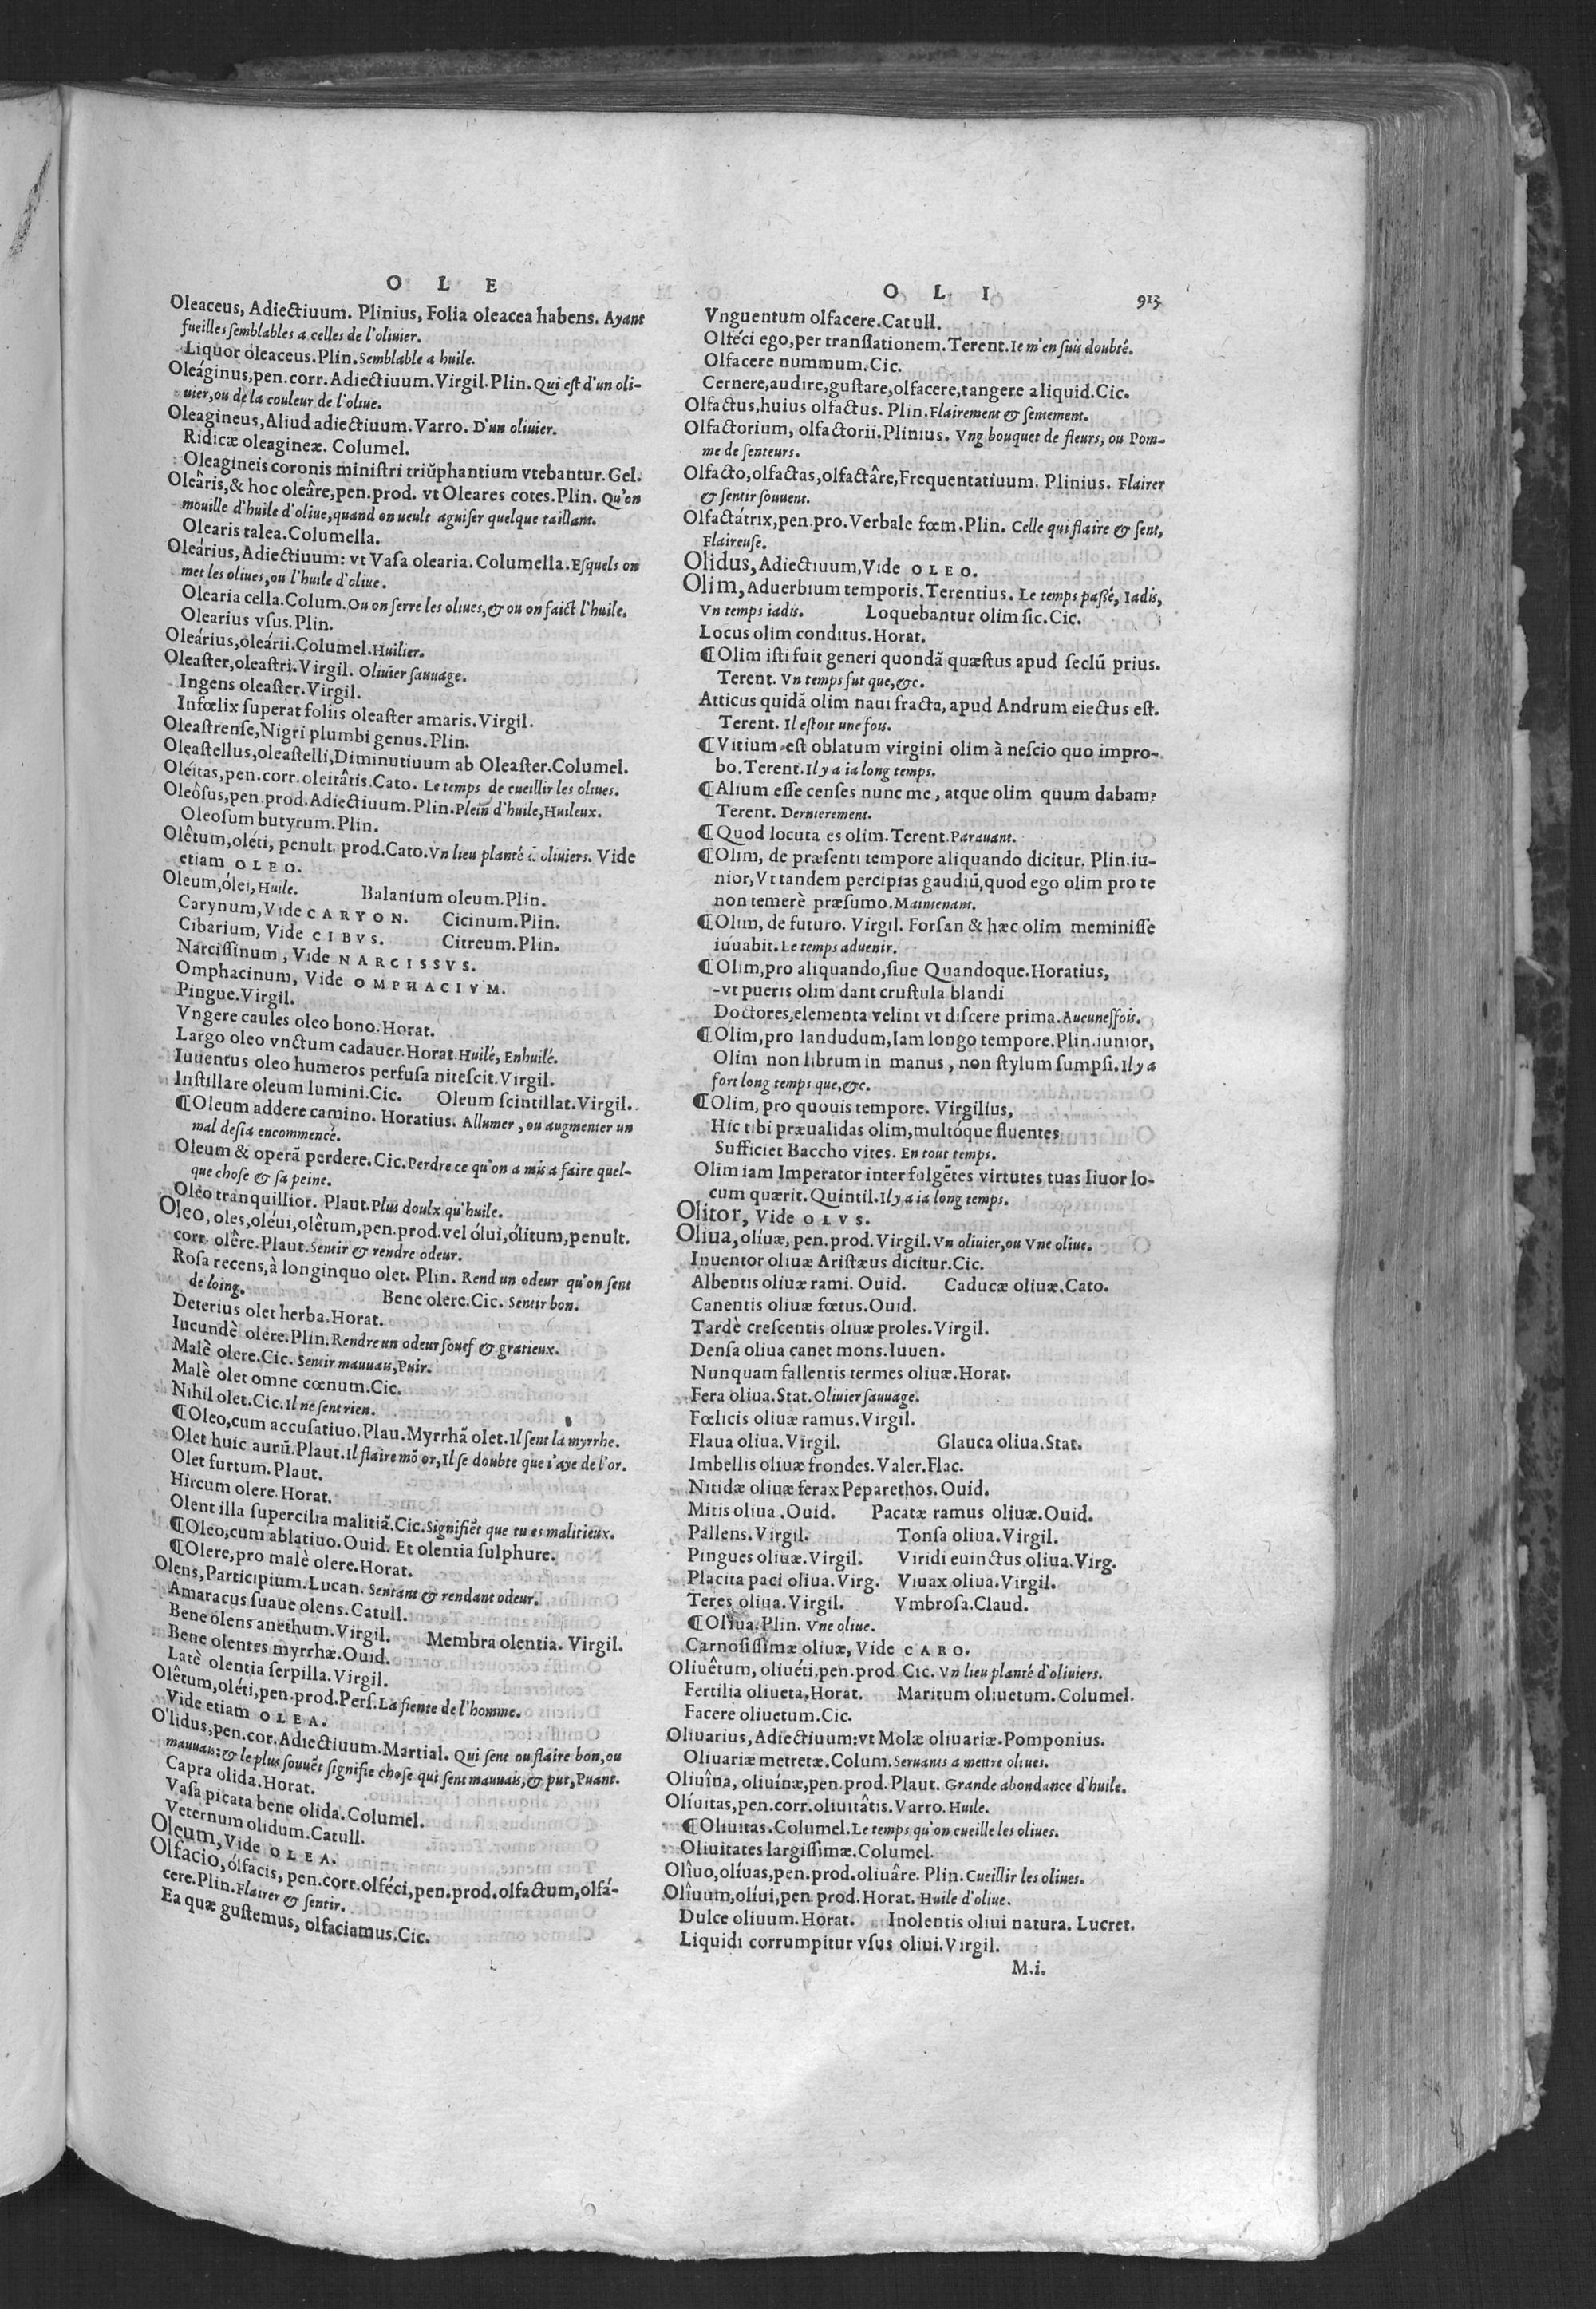 O L E
Oleaceus, Adiectiuum. Plinius, Folia oleacea habens. Ayant
fueilles ſemblables a celles de l'oliuier.
Liquor oleaceus. Plin. Semblable a huile.
Oleáginus, pen. corr. Adiectiuum. Virgil. Plin. Qui eſt d'un oli-
uier, ou de la couleur de l'oliue.
Oleagineus, Aliud adiectiuum. Varro. D'un oliuier.
Ridicæ oleagineæ. Columel.
Oleagineis coronis miniſtri triũphantium vtebantur. Gel.
Oleâris, & hoc oleâre, pen. prod. vt Oleares cotes. Plin. Qu'on
mouille d'huile d'oliue, quand on ueult aguiſer quelque taillant.
Olearis talea. Columella.
Oleárius, Adiectiuum: vt Vaſa olearia. Columella. Eſquels on
met les oliues, ou l'huile d'oliue.
Olearia cella. Colum. Ou on ſerre les oliues, & ou on faict l'huile.
Olearius vſus. Plin.
Oleárius, oleárii. Columel. Huilier.
Oleaſter, oleaſtri. Virgil. Oliuier ſauuage.
Ingens oleaſter. Virgil.
Infœlix ſuperat foliis oleaſter amaris. Virgil.
Oleaſtrenſe, Nigri plumbi genus. Plin.
Oleaſtellus, oleaſtelli, Diminutiuum ab Oleaſter. Columel.
Oléitas, pen. corr. oleitâtis. Cato. Le temps de cueillir les oliues.
Oleôſus, pen. prod. Adiectiuum. Plin. Plein d'huile, Huileux.
Oleoſum butyrum. Plin.
Olêtum, oléti, penult. prod. Cato. Vn lieu planté oliuiers. Vide
etiam OLEO.
Oleum, ólei, Huile. Balanium oleum. Plin.
Carynum, Vide CARYON. Cicinum. Plin.
Cibarium, Vide CIBVS. Citreum. Plin.
Narciſſinum, Vide NARCISSVS.
Omphacinum, Vide OMPHACIVM.
Pingue. Virgil.
Vngere caules oleo bono. Horat.
Largo oleo vnctum cadauer. Horat. Huilé, Enhuilé.
Iuuentus oleo humeros perfuſa niteſcit. Virgil.
Inſtillare oleum lumini. Cic. Oleum ſcintillat. Virgil.
¶Oleum addere camino. Horatius. Allumer, ou augmenter un
mal deſia encommencé.
Oleum & operã perdere. Cic. Perdre ce qu'on a mis a faire quel-
que choſe & ſa peine.
Oleo tranquillior. Plaut. Plus doulx qu'huile.
Oleo, oles, oléui, olêtum, pen. prod. vel ólui, ólitum, penult.
corr. olêre. Plaut. Sentir & rendre odeur.
Roſa recens, à longinquo olet. Plin. Rend un odeur qu'on ſent
de loing. Bene olere. Cic. Sentir bon.
Deterius olet herba. Horat.
Iucundè olere. Plin. Rendre un odeur ſouef & gratieux.
Malè olere. Cic. Sentir mauuais, Puir.
Malè olet omne cœnum. Cic.
Nihil olet. Cic. Il ne ſent rien.
¶Oleo, cum accuſatiuo. Plau. Myrrhã olet. Il ſent la myrrhe.
Olet huic aurũ. Plaut. Il flaire mõ or, Il ſe doubte que i'aye de l'or.
Olet furtum. Plaut.
Hircum olere. Horat.
Olent illa ſupercilia malitiã. Cic. Signifiẽt que tu es malitieux.
¶Oleo, cum ablatiuo. Ouid. Et olentia ſulphure.
¶Olere, pro malè olere. Horat.
Olens, Participium. Lucan. Sentant & rendant odeur.
Amaracus ſuaue olens. Catull.
Bene olens anethum. Virgil. Membra olentia. Virgil.
Bene olentes myrrhæ. Ouid.
Latè olentia ſerpilla. Virgil.
Olêtum, oléti, pen. prod. Perſ. La fiente de l'homme.
Vide etiam OLEA.
O'lidus, pen. cor. Adiectiuum. Martial. Qui ſent ou flaire bon, ou
mauuais: & le plus ſouuẽt ſignifie choſe qui ſent mauuais, & put, Puant.
Capra olida. Horat.
Vaſa picata bene olida. Columel.
Veternum olidum. Catull.
Oleum, Vide OLEA.
Olfacio, ólfacis, pen. corr. olféci, pen. prod. olfactum, olfá-
cere. Plin. Flairer & ſentir.
Ea quæ guſtemus, olfaciamus. Cic.
O L I
913
Vnguentum olfacere. Catull.
Olféci ego, per tranſlationem. Terent. Ie m'en ſuis doubté.
Olfacere nummum. Cic.
Cernere, audire, guſtare, olfacere, tangere aliquid. Cic.
Olfactus, huius olfactus. Plin. Flairement & ſentement.
Olfactorium, olfactorii. Plinius. Vng bouquet de fleurs, ou Pom-
me de ſenteurs.
Olfacto, olfactas, olfactâre, Frequentatiuum. Plinius. Flairer
& ſentir ſouuent.
Olfactátrix, pen. pro. Verbale fœm. Plin. Celle qui flaire & ſent,
Flaireuſe.
Olidus, Adiectiuum, Vide OLEO.
Olim, Aduerbium temporis. Terentius. Le temps paßé, Iadis,
Vn temps iadis. Loquebantur olim ſic. Cic.
Locus olim conditus. Horat.
¶Olim iſti fuit generi quondã quæſtus apud ſeclũ prius.
Terent. Vn temps fut que, &c.
Atticus quidã olim naui fracta, apud Andrum eiectus eſt.
Terent. Il eſtoit une fois.
¶Vitium eſt oblatum virgini olim à neſcio quo impro-
bo. Terent. Il y a ia long temps.
¶Alium eſſe cenſes nunc me, atque olim quum dabam?
Terent. Dernierement.
¶Quod locuta es olim. Terent. Parauant.
¶Olim, de præſenti tempore aliquando dicitur. Plin. iu-
nior, Vt tandem percipias gaudiũ, quod ego olim pro te
non temerè præſumo. Maintenant.
¶Olim, de futuro. Virgil. Forſan & hæc olim meminiſſe
iuuabit. Le temps aduenir.
¶Olim, pro aliquando, ſiue Quandoque. Horatius,
-vt pueris olim dant cruſtula blandi
Doctores, elementa velint vt diſcere prima. Aucuneſſois.
¶Olim, pro Iandudum, Iam longo tempore. Plin. iunior,
Olim non librum in manus, non ſtylum ſumpſi. Il y a
fort long temps que, &c.
¶Olim, pro quouis tempore. Virgilius,
Hic tibi præualidas olim, multóque fluentes
Sufficiet Baccho vites. En tout temps.
Olim iam Imperator inter fulgẽtes virtutes tuas liuor lo-
cum quærit. Quintil. Il y a ia long temps.
Olitor, Vide OLVS.
Oliua, olíuæ, pen. prod. Virgil. Vn oliuier, ou Vne oliue.
Inuentor oliuæ Ariſtæus dicitur. Cic.
Albentis oliuæ rami. Ouid. Caducæ oliuæ. Cato.
Canentis oliuæ fœtus. Ouid.
Tardè creſcentis oliuæ proles. Virgil.
Denſa oliua canet mons. Iuuen.
Nunquam fallentis termes oliuæ. Horat.
Fera oliua. Stat. Oliuier ſauuage.
Fœlicis oliuæ ramus. Virgil.
Flaua oliua. Virgil. Glauca oliua. Stat.
Imbellis oliuæ frondes. Valer. Flac.
Nitidæ oliuæ ferax Peparethos. Ouid.
Mitis oliua. Ouid. Pacatæ ramus oliuæ. Ouid.
Pallens. Virgil. Tonſa oliua. Virgil.
Pingues oliuæ. Virgil. Viridi euinctus oliua. Virg.
Placita paci oliua. Virg. Viuax oliua. Virgil.
Teres oliua. Virgil. Vmbroſa. Claud.
¶Oliua. Plin. Vne oliue.
Carnoſiſſimæ oliuæ, Vide CARO.
Oliuêtum, oliuéti, pen. prod. Cic. Vn lieu planté d'oliuiers.
Fertilia oliueta. Horat. Maritum oliuetum. Columel.
Facere oliuetum. Cic.
Oliuarius, Adiectiuum: vt Molæ oliuariæ. Pomponius.
Oliuariæ metretæ. Colum. Seruants a mettre oliues.
Oliuîna, oliuínæ, pen. prod. Plaut. Grande abondance d'huile.
Olíuitas, pen. corr. oliuitâtis. Varro. Huile.
¶Oliuitas. Columel. Le temps qu'on cueille les oliues.
Oliuitates largiſſimæ. Columel.
Olîuo, olíuas, pen. prod. oliuâre. Plin. Cueillir les oliues.
Olîuum, olíui, pen. prod. Horat. Huile d'oliue.
Dulce oliuum. Horat. Inolentis oliui natura. Lucret.
Liquidi corrumpitur vſus oliui. Virgil.
M.i.